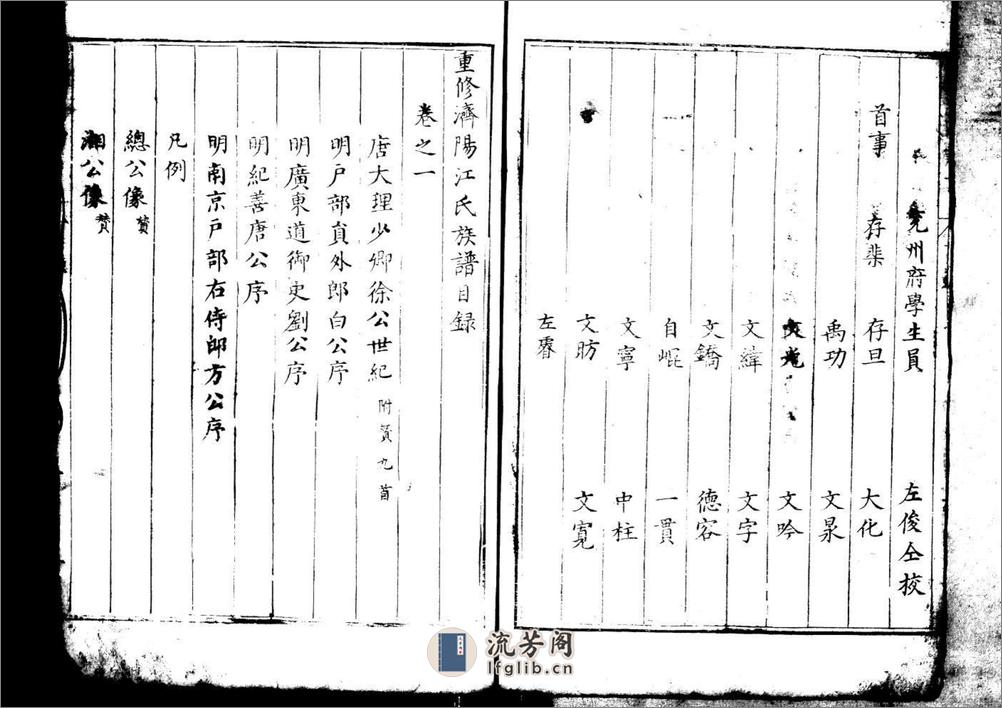 兖州府學生員 左俊仝校
首事 存葉 存旦 大化
禹功 文杲
文光 文吟
文緯 文字
文鐈 德容
自崐 一貫
文寧 中柱
文昉 文寬
左
重修濟陽江氏族譜目録
卷之一
唐大理少卿徐公世紀 附贊九首
明戶部貟外郎白公序
明廣東道御史劉公序
明紀善唐公序
明南京戶部右侍郎方公序
凡例
總公像 贊
湘公像 贊
流芳阁
lfglib.cn